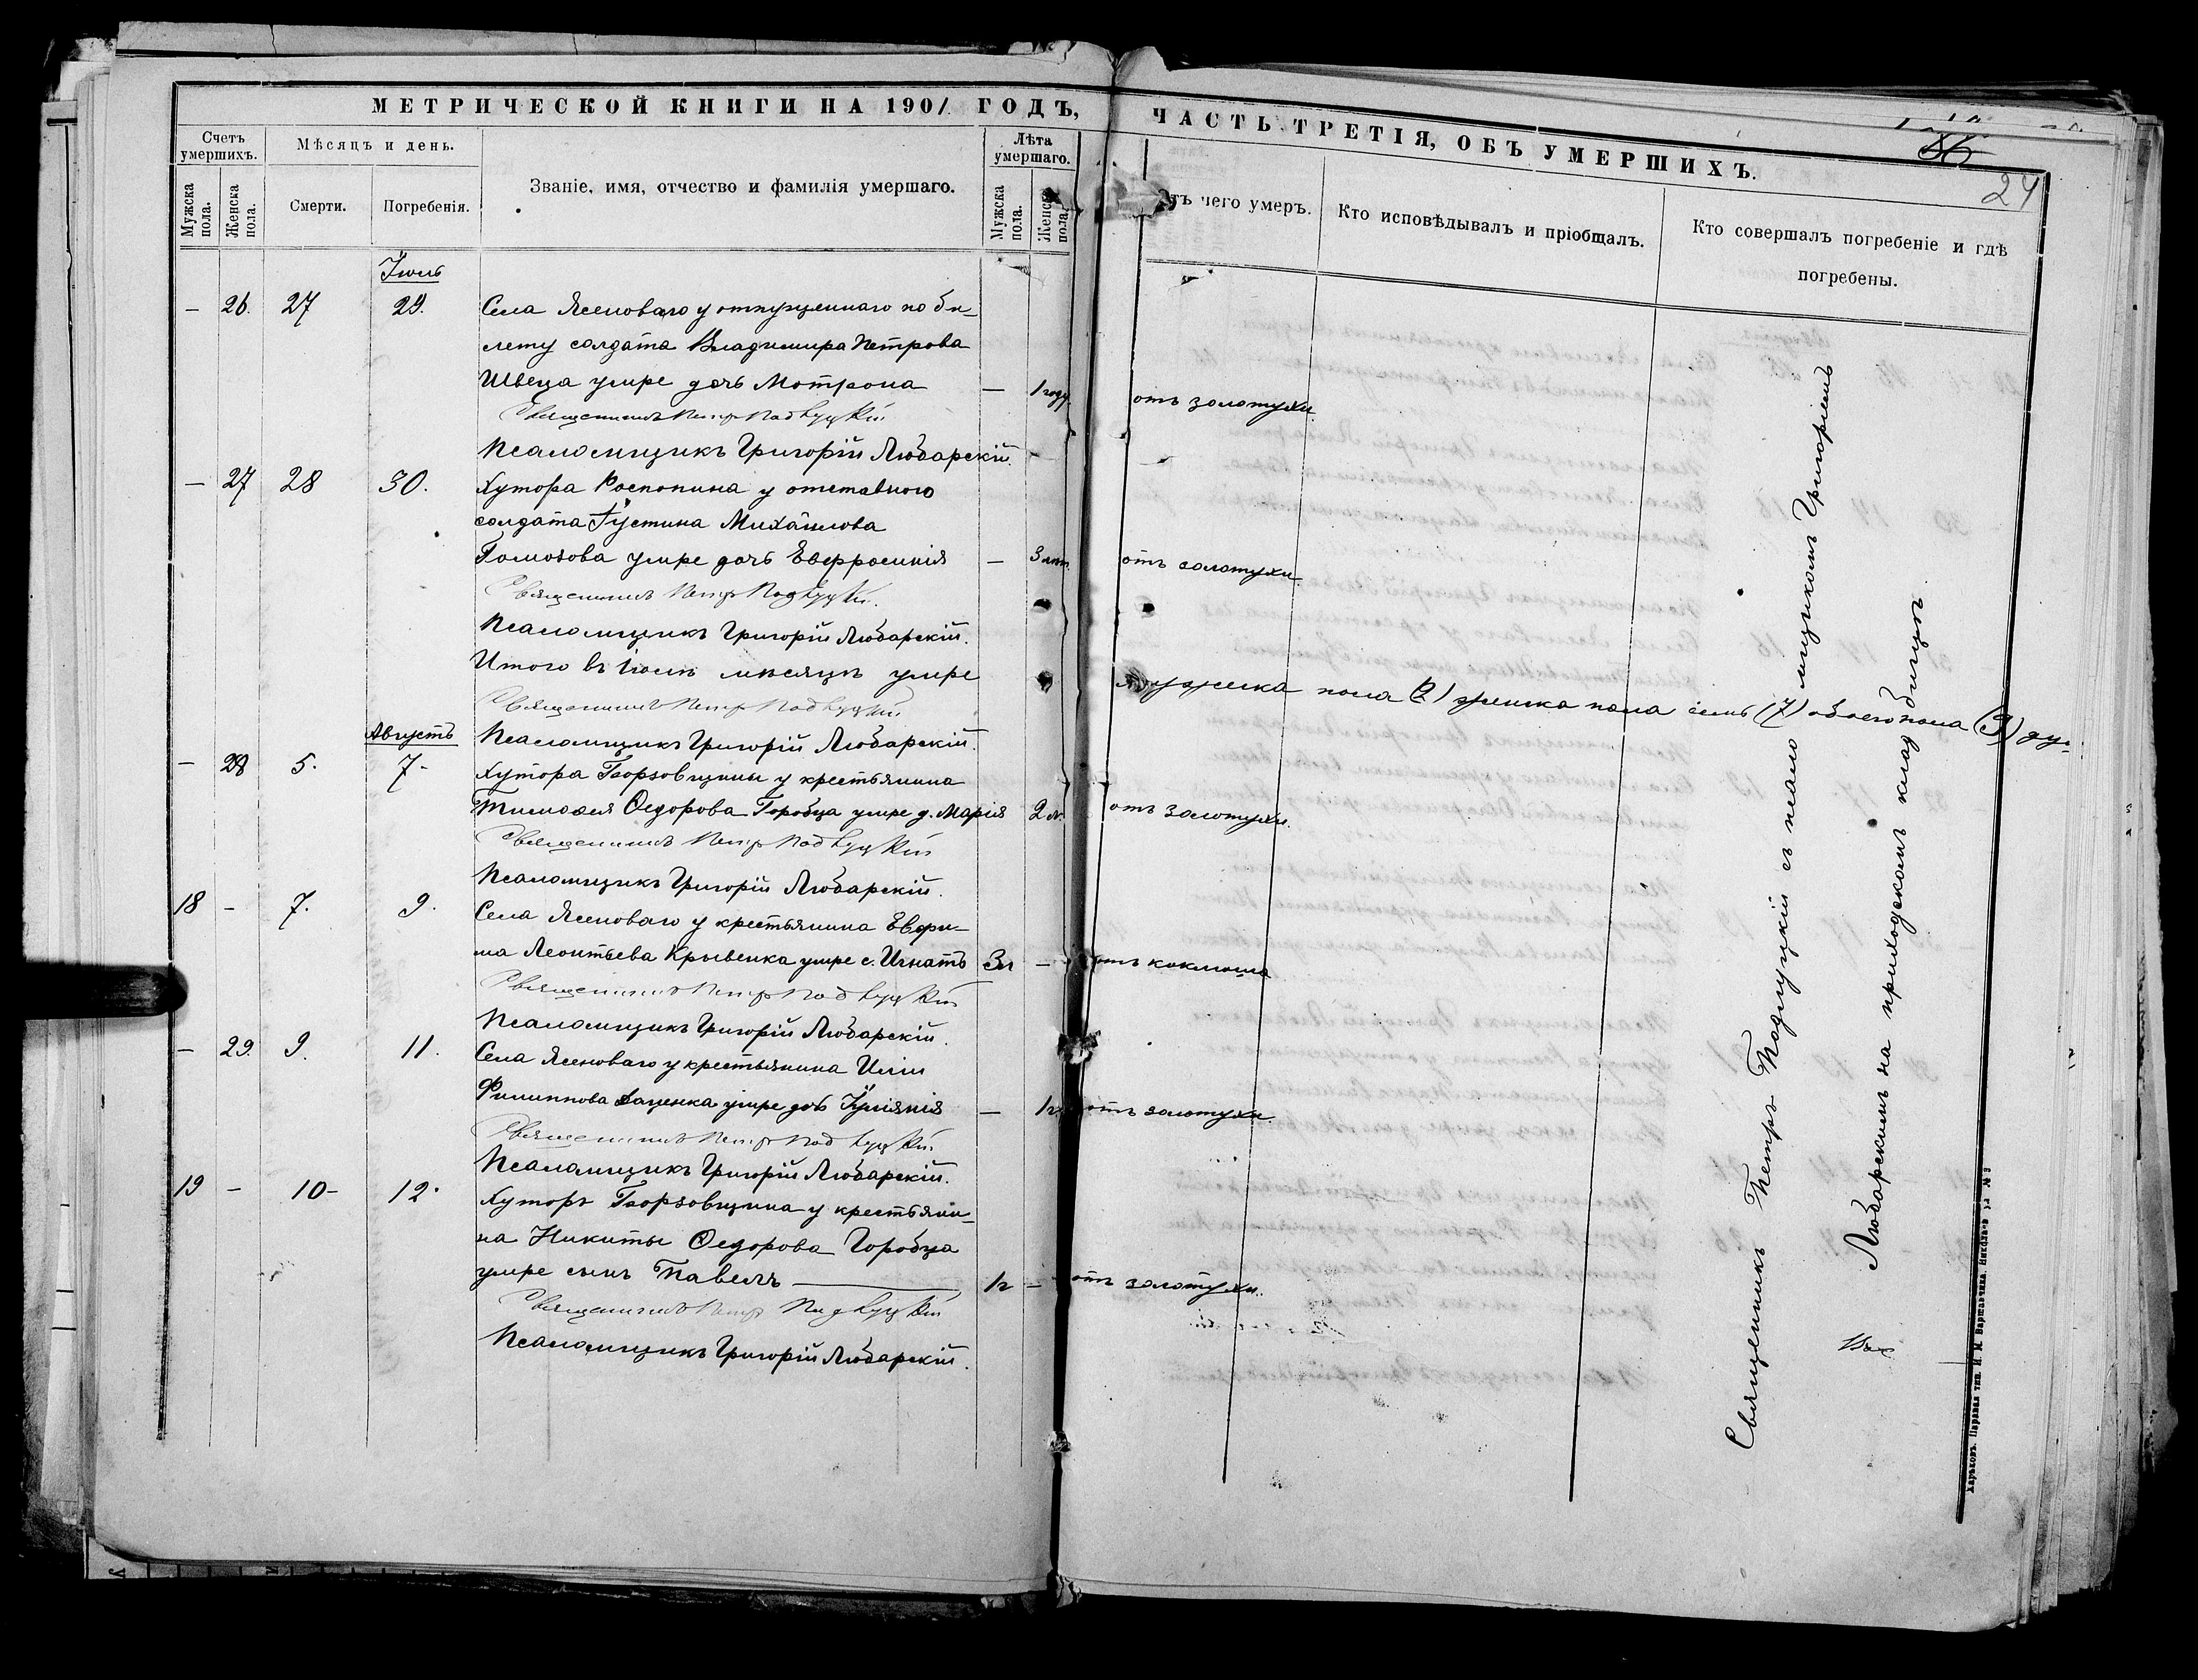 МЕТРИЧЕСКОЙ КНИГИ НА 1901 ГОДЪ,
Счетъ умершихъ.
Мѣсяцъ и день.
Званіе, имя, отчество и фамилія умершаго.
Лѣта умершаго.
Мужска пола.
Женска пола.
Смерти.
Погребенія.
Мужска пола.
Женска пола.
Іюль
— 26. 27 29. Села Ясеноваго у отпущеннаго по би-
лету солдата Владимира Петрова
Швеца умре дочь Мотрона — 1 году.
Священникъ Петръ Подлуцкій
Псаломщикъ Григорій Любарскій.
— 27 28 30. Хутора Распопина у отставного
солдата Іустина Михайлова
умре дочь Евфросинія — 3 лѣт.
Священникъ Петръ Подлуцкій.
Псаломщикъ Григорій Любарскій.
Итого въ Іюлѣ мѣсяцѣ умре
Священникъ Петръ Подлуцкій
Августъ
Псаломщикъ Григорій Любарскій.
— 28 5. 7. Хутора у крестьянина
Тимофея Ѳедорова Горобца умре д. Марія 2 л.
Священникъ Петръ Подлуцкій
Псаломщикъ Григорій Любарскій.
18 — 7. 9. Села Ясеноваго у крестьянина Ефри-
ма Леонтьева Крывенка умре с. Игнатъ 3 л —
Священникъ Петръ Подлуцкій
Псаломщикъ Григорій Любарскій.
— 29. 9. 11. Села Ясеноваго у крестьянина Иліи
Филиппова Даценка умре дочь Іуліянія — 1 г.
Священникъ Петръ Подлуцкій.
Псаломщикъ Григорій Любарскій.
19 — 10- 12. Хуторъ у крестьяни-
на Никиты Ѳедорова Горобца
умре сынъ Павелъ 1 г —
Священникъ Петръ Подлуцкій
Псаломщикъ Григорій Любарскій.
ЧАСТЬ ТРЕТІЯ, ОБЪ УМЕРШИХЪ.
24
Отъ чего умеръ.
Кто исповѣдывалъ и пріобщалъ.
Кто совершалъ погребеніе и гдѣ
погребены.
отъ золотухи.
отъ золотухи.
мужеска пола (2) женска пола семь (7) обоего пола (9) ду-
отъ золотухи.
отъ коклюша
отъ золотухи.
отъ золотухи.
Священникъ Петръ Подлуцкій съ псаломщикомъ Григоріемъ
Любарскимъ на приходскомъ кладбищѣ
Харьковъ. Паровая тип. И. М. Варшавчика. Николаев. ул. № 9